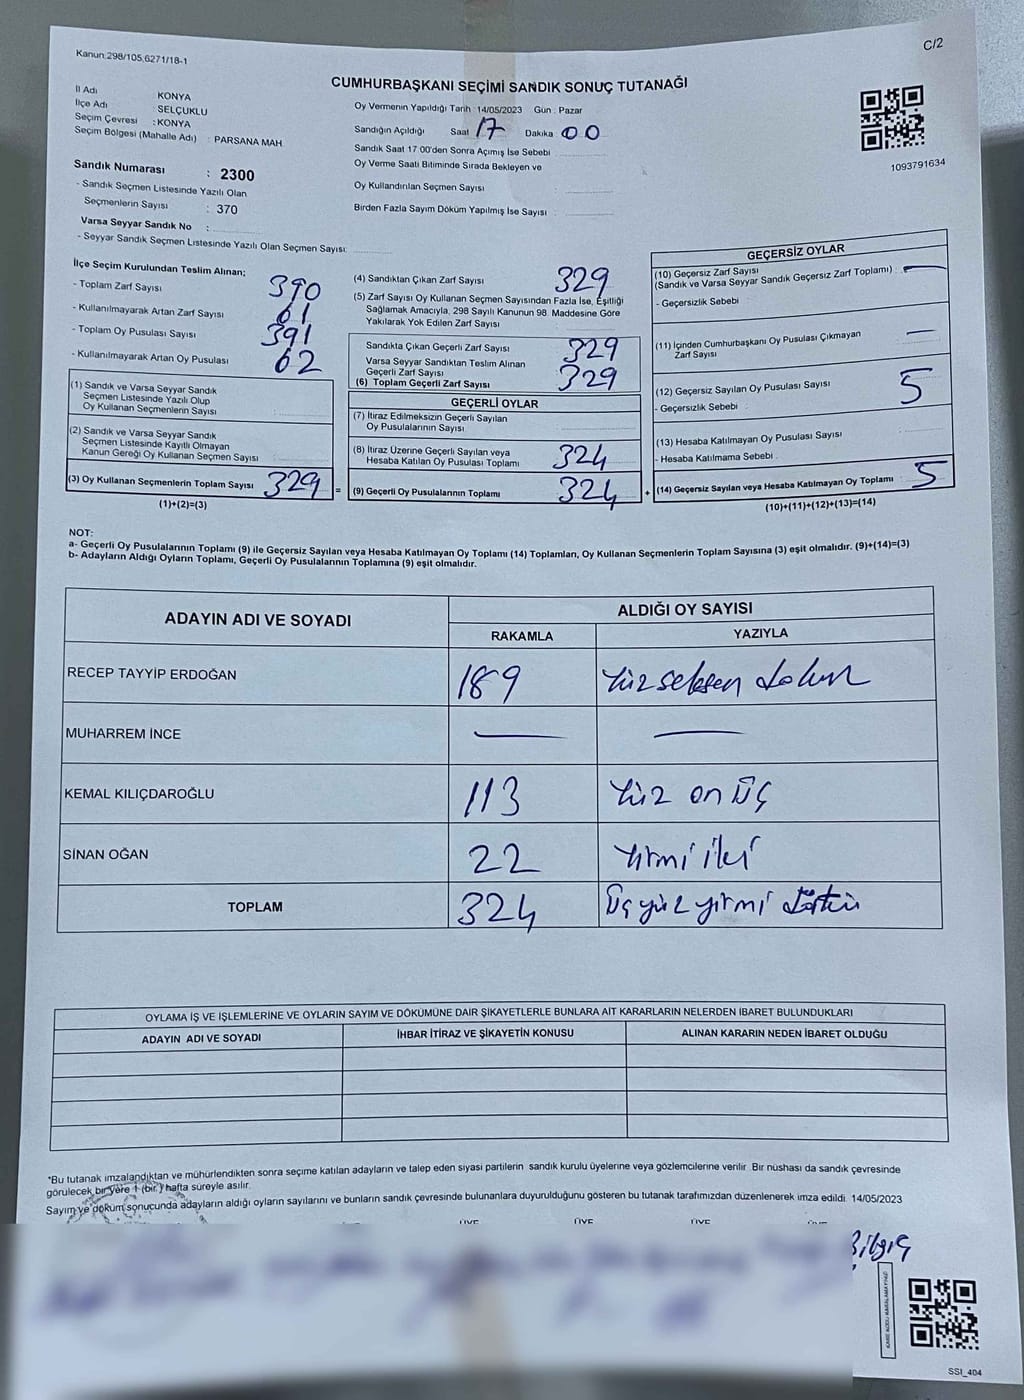 Kanun:298/105,6271/18-1
C/2
CUMHURBAŞKANI SEÇİMİ SANDIK SONUÇ TUTANAĞI
İl Adı KONYA
İlçe Adı SELÇUKLU
Seçim Çevresi : KONYA
Seçim Bölgesi (Mahalle Adı) : PARSANA MAH
Oy Vermenin Yapıldığı Tarih : 14/05/2023 Gün : Pazar
Sandığın Açıldığı Saat 17 Dakika 00
Sandık Saat 17:00'den Sonra Açımış İse Sebebi
Oy Verme Saati Bitiminde Sırada Bekleyen ve
Oy Kullandırılan Seçmen Sayısı
Birden Fazla Sayım Döküm Yapılmış İse Sayısı
1093791634
Sandık Numarası : 2300
- Sandık Seçmen Listesinde Yazılı Olan
Seçmenlerin Sayısı : 370
Varsa Seyyar Sandık No :
- Seyyar Sandık Seçmen Listesinde Yazılı Olan Seçmen Sayısı:
İlçe Seçim Kurulundan Teslim Alınan;
- Toplam Zarf Sayısı 390
- Kullanılmayarak Artan Zarf Sayısı 61
- Toplam Oy Pusulası Sayısı 391
- Kullanılmayarak Artan Oy Pusulası 62
(1) Sandık ve Varsa Seyyar Sandık
Seçmen Listesinde Yazılı Olup
Oy Kullanan Seçmenlerin Sayısı
(2) Sandık ve Varsa Seyyar Sandık
Seçmen Listesinde Kayıtlı Olmayan
Kanun Gereği Oy Kullanan Seçmen Sayısı
(3) Oy Kullanan Seçmenlerin Toplam Sayısı 329 =
(1)+(2)=(3)
(4) Sandıktan Çıkan Zarf Sayısı 329
(5) Zarf Sayısı Oy Kullanan Seçmen Sayısından Fazla İse, Eşitliği
Sağlamak Amacıyla, 298 Sayılı Kanunun 98. Maddesine Göre
Yakılarak Yok Edilen Zarf Sayısı
Sandıkta Çıkan Geçerli Zarf Sayısı 329
Varsa Seyyar Sandıktan Teslim Alınan
Geçerli Zarf Sayısı
(6) Toplam Geçerli Zarf Sayısı 329
GEÇERLİ OYLAR
(7) İtiraz Edilmeksizin Geçerli Sayılan
Oy Pusulalarının Sayısı
(8) İtiraz Üzerine Geçerli Sayılan veya
Hesaba Katılan Oy Pusulası Toplamı 324
(9) Geçerli Oy Pusulalarının Toplamı 324 +
GEÇERSİZ OYLAR
(10) Geçersiz Zarf Sayısı
(Sandık ve Varsa Seyyar Sandık Geçersiz Zarf Toplamı) : —
- Geçersizlik Sebebi
(11) İçinden Cumhurbaşkanı Oy Pusulası Çıkmayan
Zarf Sayısı —
(12) Geçersiz Sayılan Oy Pusulası Sayısı 5
- Geçersizlik Sebebi
(13) Hesaba Katılmayan Oy Pusulası Sayısı
- Hesaba Katılmama Sebebi
(14) Geçersiz Sayılan veya Hesaba Katılmayan Oy Toplamı 5
(10)+(11)+(12)+(13)=(14)
NOT:
a- Geçerli Oy Pusulalarının Toplamı (9) ile Geçersiz Sayılan veya Hesaba Katılmayan Oy Toplamı (14) Toplamları, Oy Kullanan Seçmenlerin Toplam Sayısına (3) eşit olmalıdır. (9)+(14)=(3)
b- Adayların Aldığı Oyların Toplamı, Geçerli Oy Pusulalarının Toplamına (9) eşit olmalıdır.
ADAYIN ADI VE SOYADI ALDIĞI OY SAYISI
RAKAMLA YAZIYLA
RECEP TAYYİP ERDOĞAN 189 Yüz seksen dokuz
MUHARREM İNCE — —
KEMAL KILIÇDAROĞLU 113 Yüz on üç
SİNAN OĞAN 22 Yirmi iki
TOPLAM 324 Üç yüz yirmi dört
OYLAMA İŞ VE İŞLEMLERİNE VE OYLARIN SAYIM VE DÖKÜMÜNE DAİR ŞİKAYETLERLE BUNLARA AİT KARARLARIN NELERDEN İBARET BULUNDUKLARI
ADAYIN ADI VE SOYADI İHBAR İTİRAZ VE ŞİKAYETİN KONUSU ALINAN KARARIN NEDEN İBARET OLDUĞU
*Bu tutanak imzalandıktan ve mühürlendikten sonra seçime katılan adayların ve talep eden siyasi partilerin sandık kurulu üyelerine veya gözlemcilerine verilir. Bir nüshası da sandık çevresinde
görülecek bir yere 1 (bir ) hafta süreyle asılır.
Sayım ve döküm sonucunda adayların aldığı oyların sayılarını ve bunların sandık çevresinde bulunanlara duyurulduğunu gösteren bu tutanak tarafımızdan düzenlenerek imza edildi. 14/05/2023
ÜYE ÜYE ÜYE
Bilgiç
SSI_404